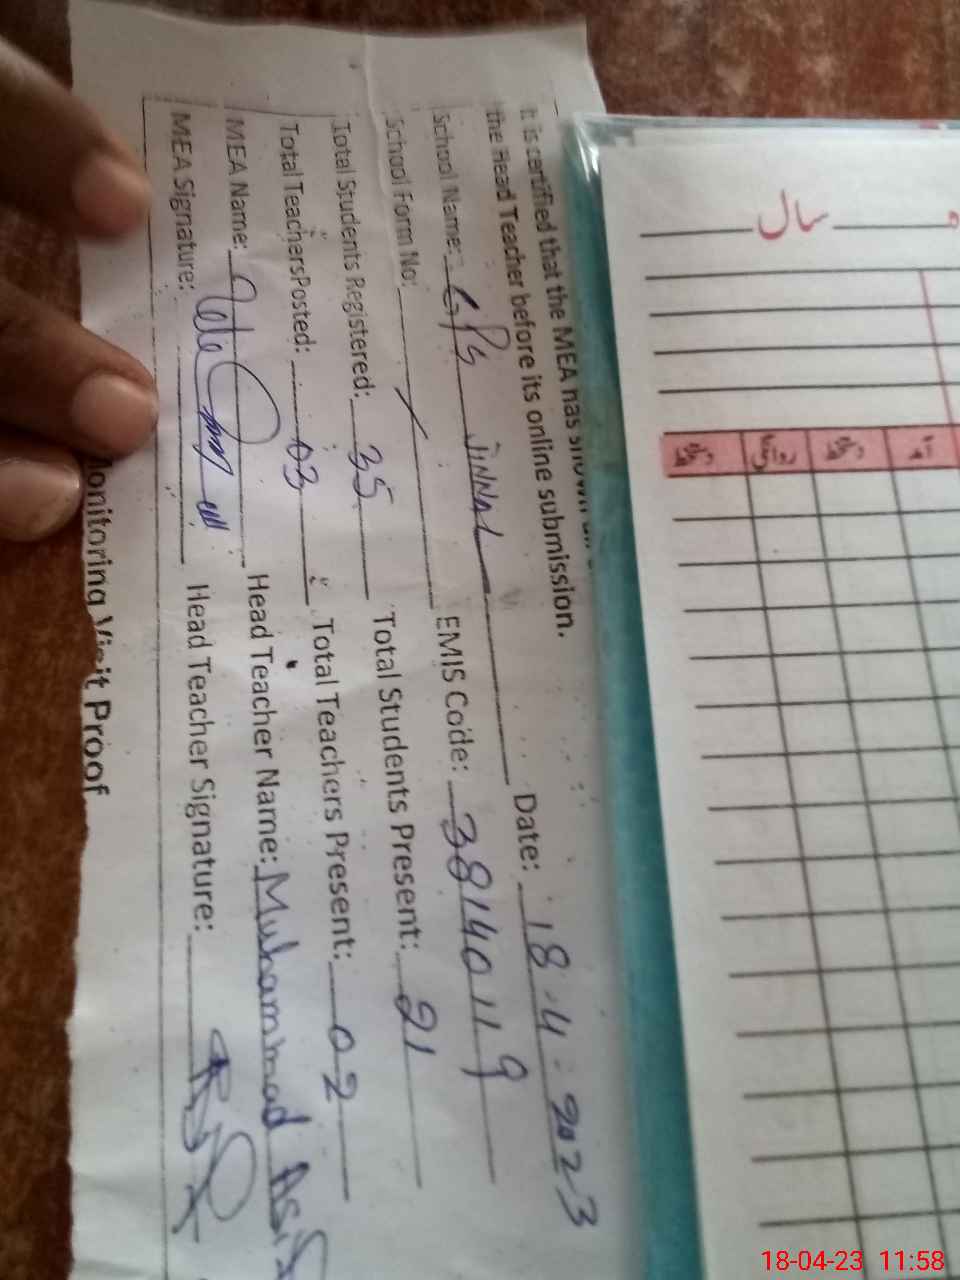 Monitoring Visit Proof
It is certified that the MEA has shown
the Head Teacher before its online submission.
School Name: GPS JINNAH Date: 18-4-2023
School Form No: / EMIS Code: 38140119
Total Students Registered: 35 Total Students Present: 21
Total Teachers Posted: 03 Total Teachers Present: 02
MEA Name: Head Teacher Name: Muhammad Asif
MEA Signature: Head Teacher Signature:
سال
روانگی
18-04-23 11:58